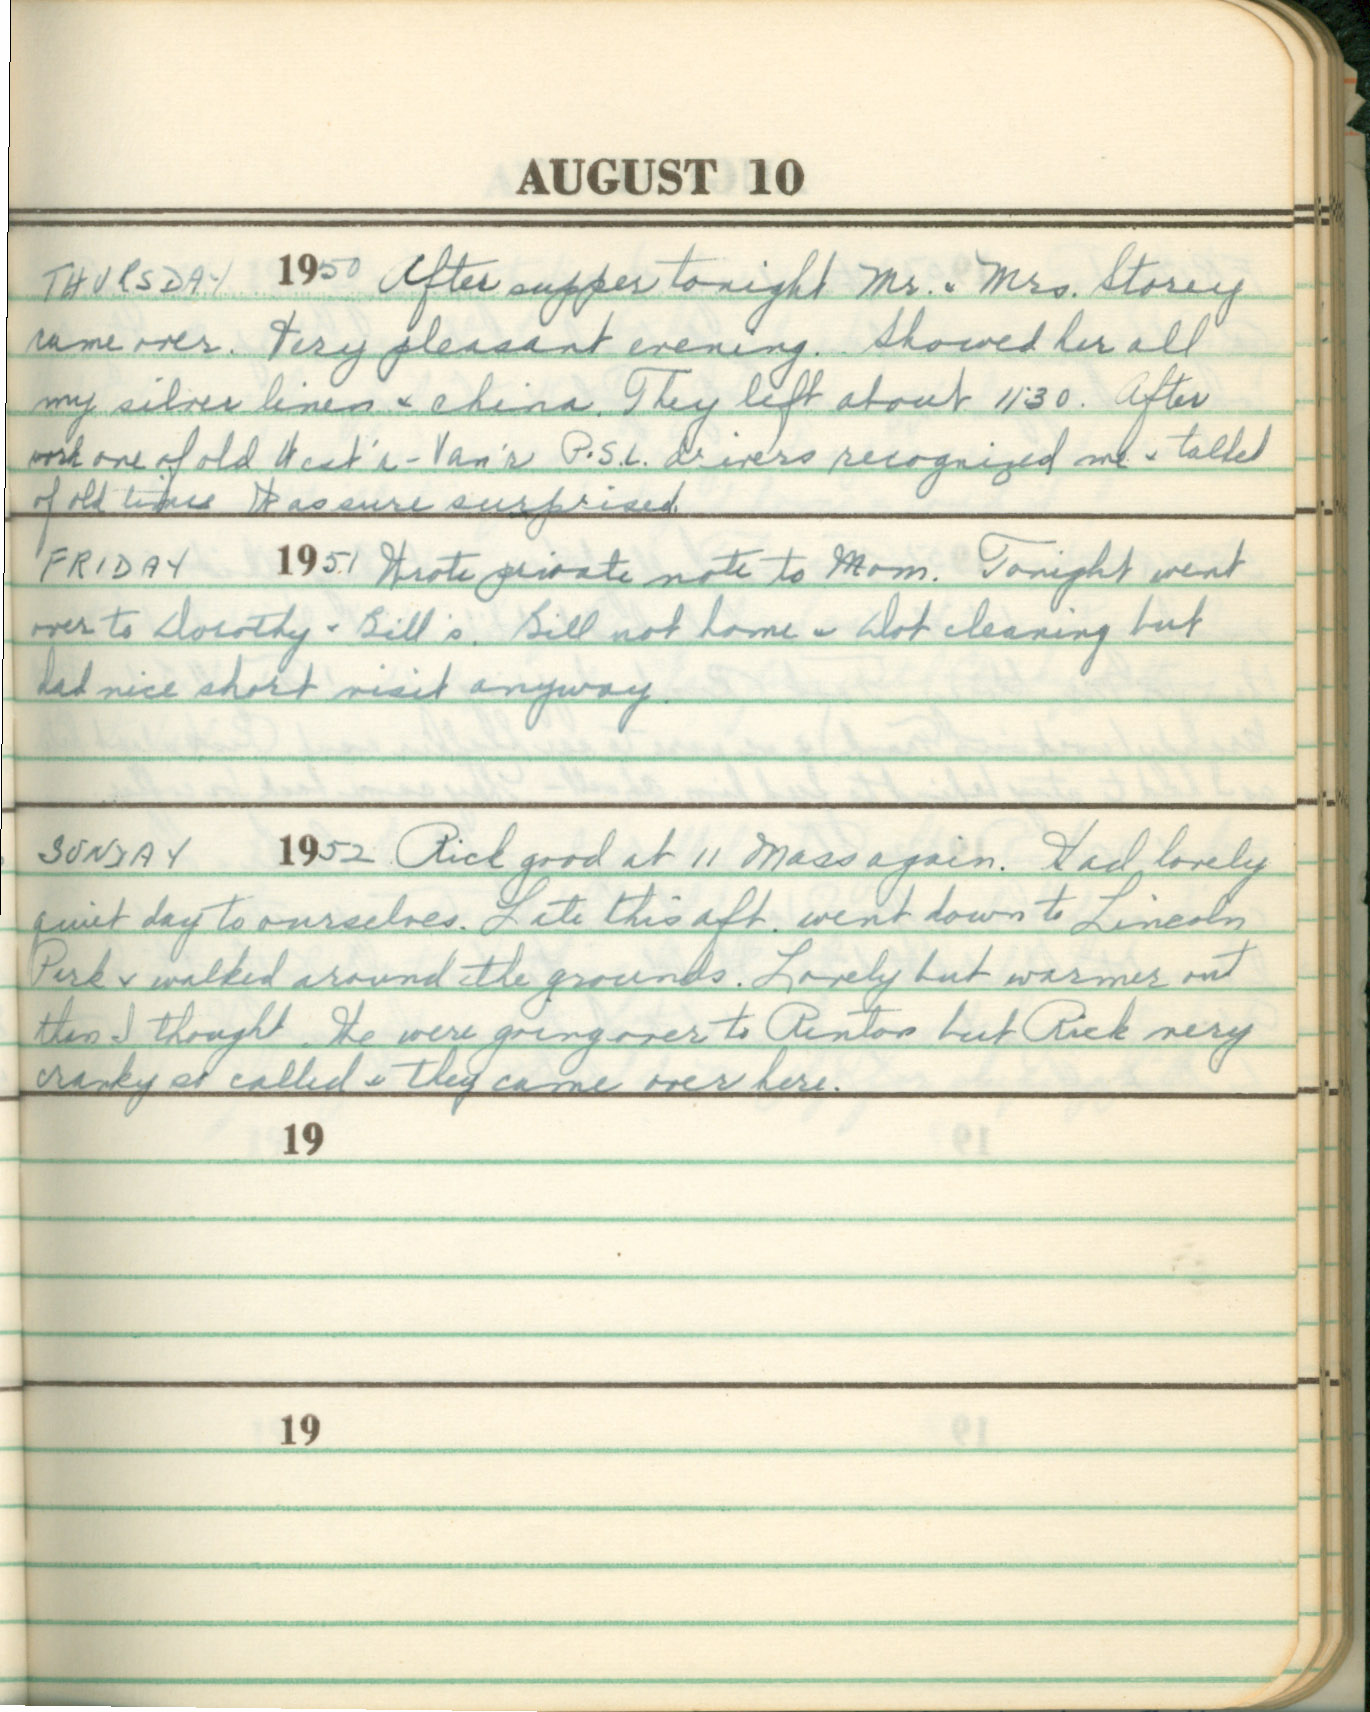 AUGUST 10
THURSDAY 1950 After supper tonight Mr. & Mrs. Storey
came over. Very pleasant evening. Showed her all
my silver linen & china. They left about 11:30. After
work one of old West'n-Van'r P.S.L. drivers recognized me & talked
of old times Was sure surprised.
FRIDAY 1951 Wrote private note to Mom. Tonight went
over to Dorothy & Bill's. Bill not home & Dot cleaning but
had nice short visit anyway.
SUNDAY 1952 Rick good at 11 Mass again. Had lovely
quiet day to ourselves. Late this aft. went down to Lincoln
Park & walked around the grounds. Lovely but warmer out
than I thought. We were going over to Renton but Rick very
cranky so called & they came over here.
19
19